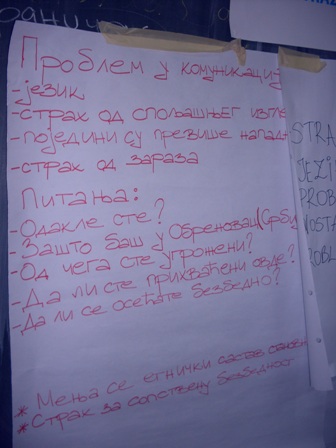 Проблем у комуникацију
-језик
-страх од спољашњег изгле
-поједини су превише напад
-страх од зараза
Питања:
-Одакле сте?
-Зашто баш у Обреновац (Срби
-Од чега сте угрожени?
-Да ли сте прихваћени овде?
-Да ли се осећате безбедно?
* Мења се етнички састав
* Страх за сопствену безбедност
STRA
JEZI
PROB
NOSTA
ROBL